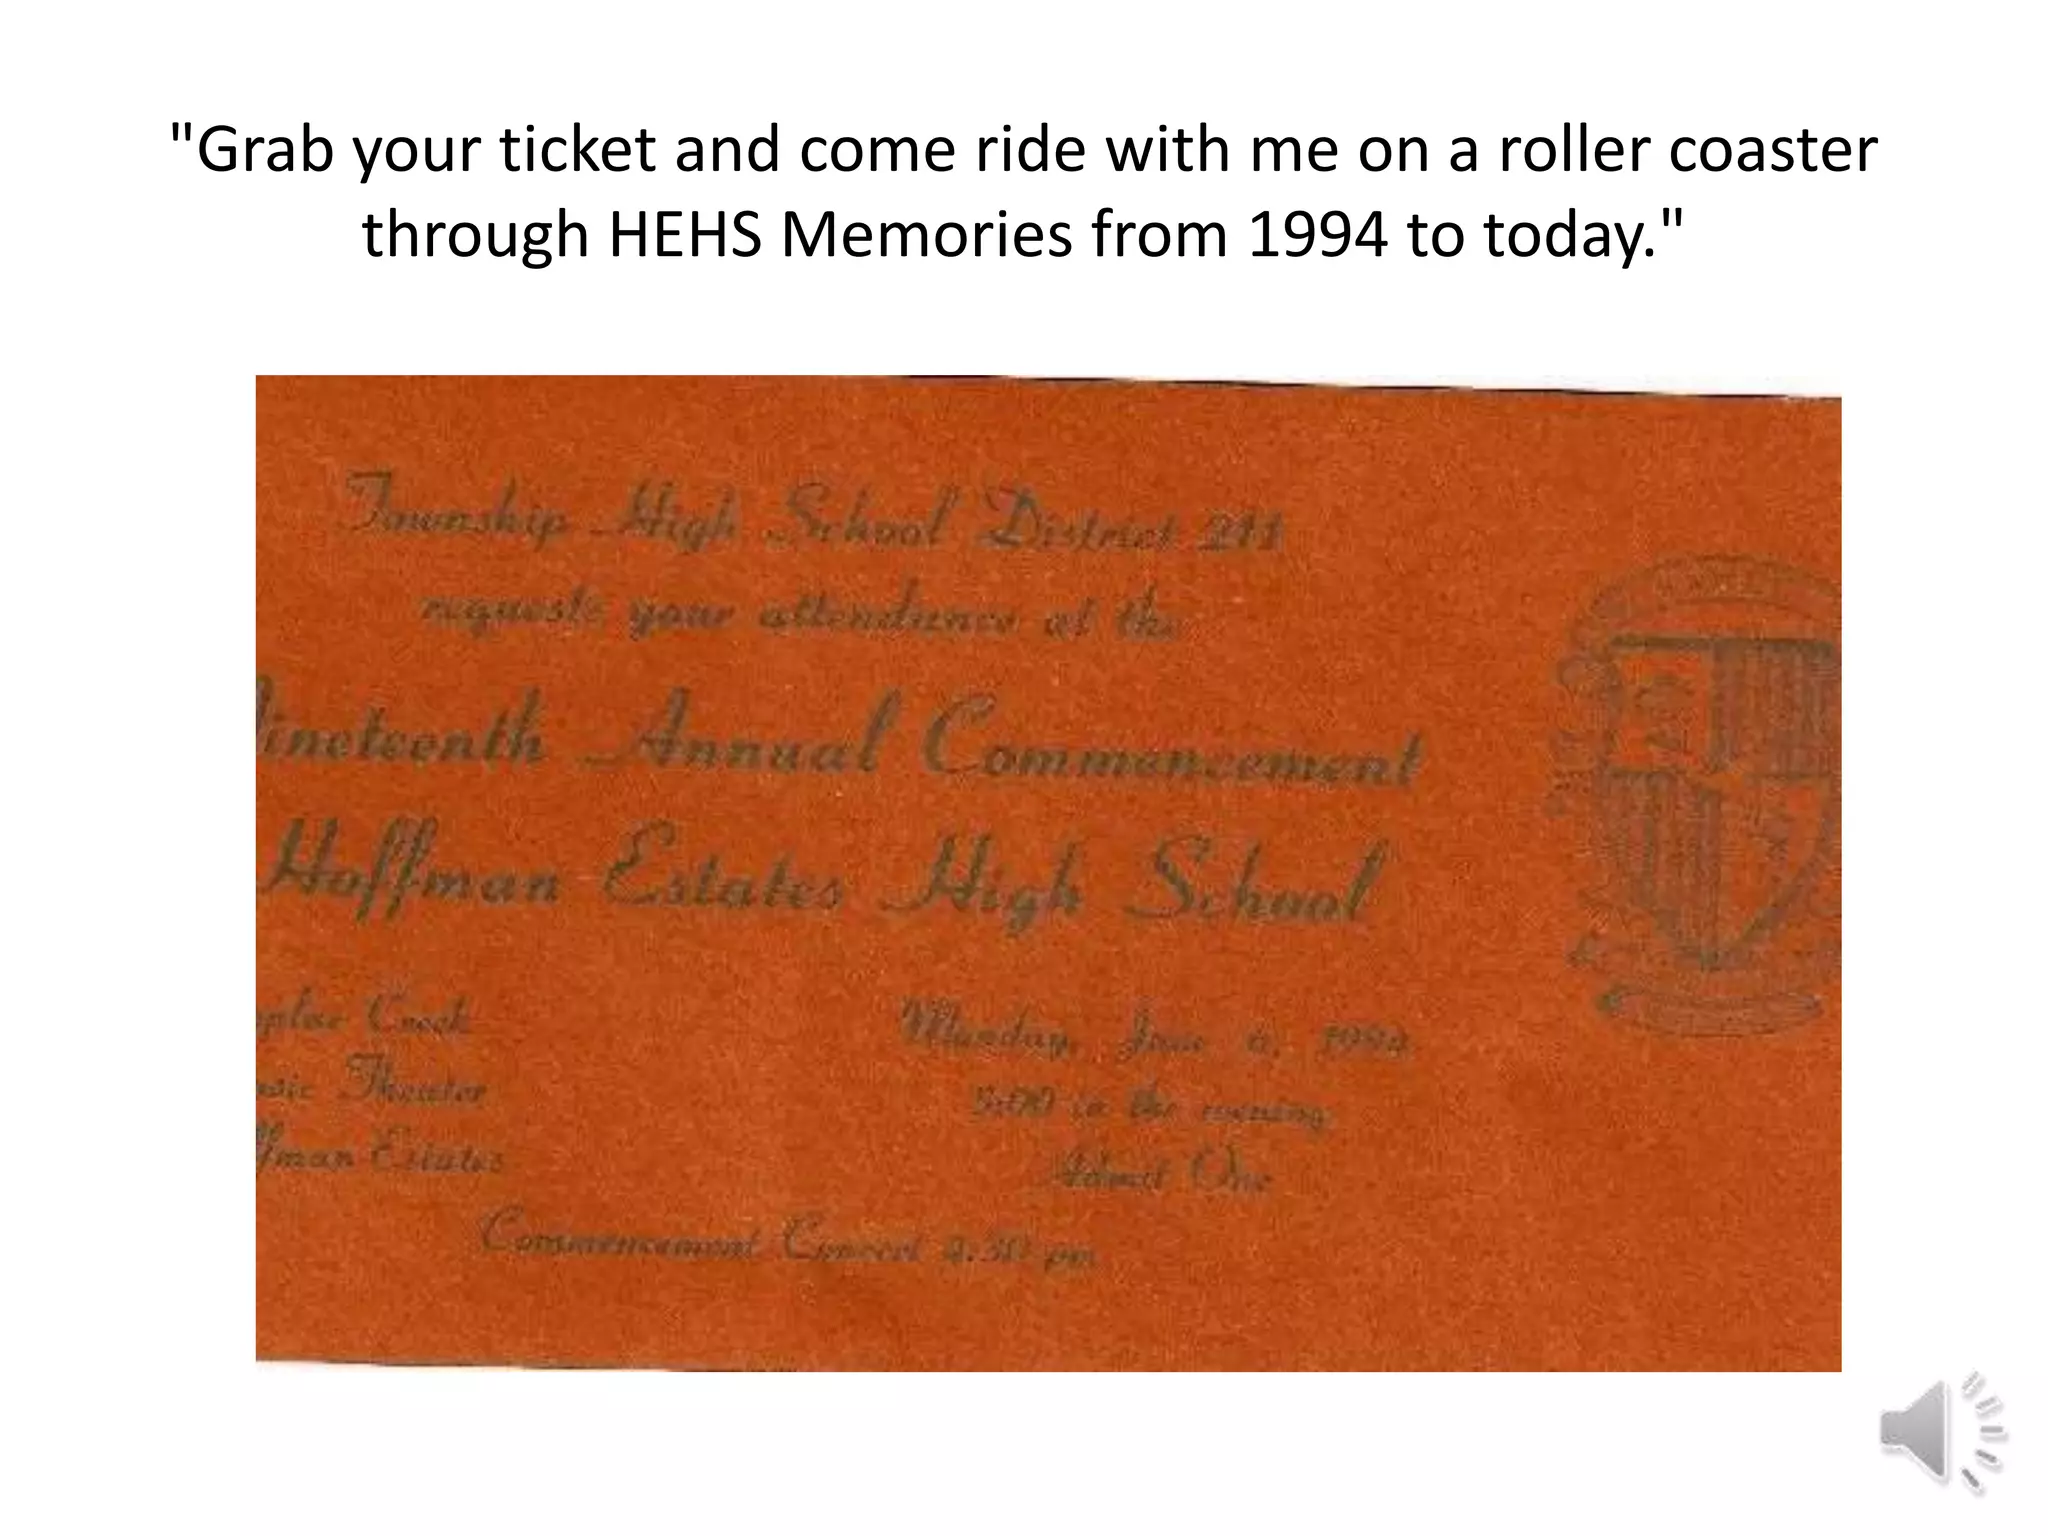 "Grab your ticket and come ride with me on a roller coaster
through HEHS Memories from 1994 to today."
Township High School District 211
requests your attendance at the
Nineteenth Annual Commencement
Hoffman Estates High School
Creek
Theater
Estates
Monday, June 6, 1994
in the evening
Admit One
Commencement Concert 4:30 pm